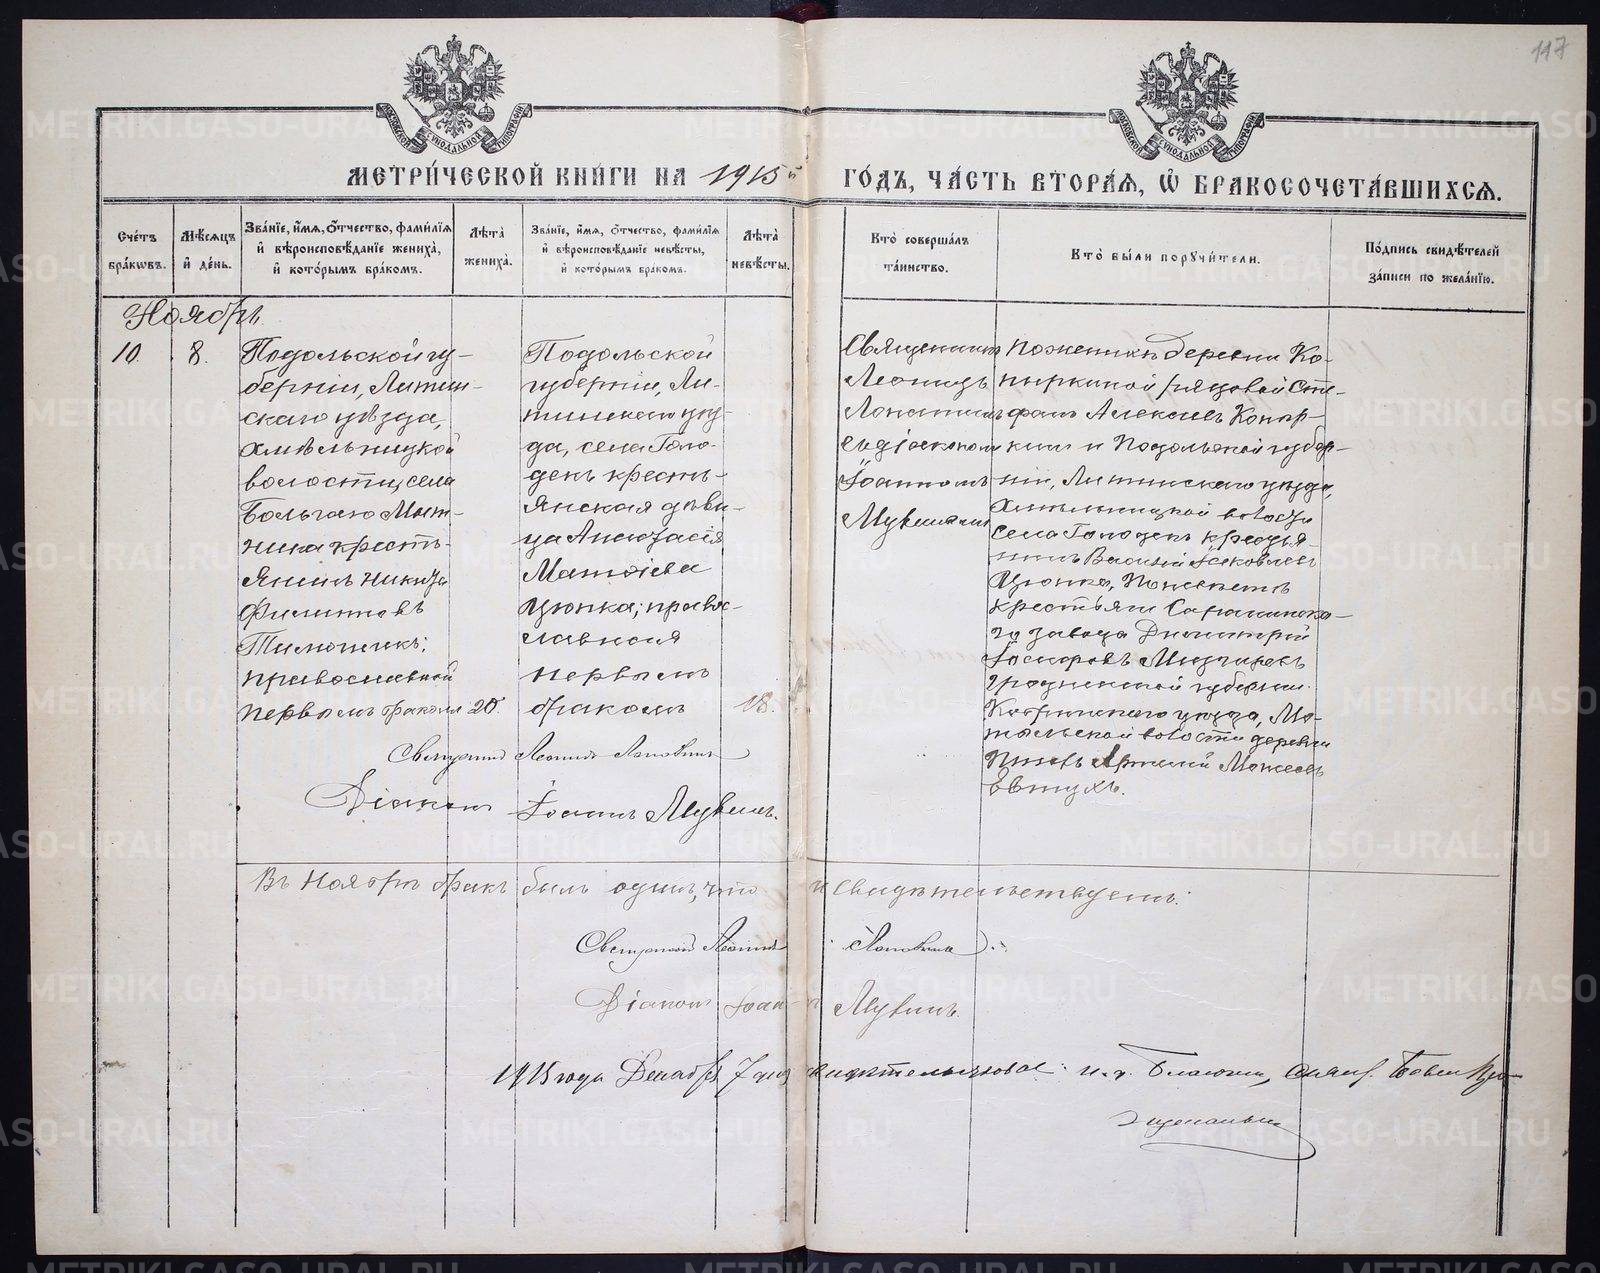 117
МЕТРИ́ЧЕСКОЙ КНИ́ГИ НА 1915й ГО́ДЪ, ЧА́СТЬ ВТОРА́Я, Ѡ БРАКОСОЧЕТА́ВШИХСЯ.
Сче́тъ бра́кѡвъ.
Мѣ́сяцъ и҆ де́нь.
Зва́нїе, и҆́мя, о҆́тчество, фами́лїя и҆ вѣроисповѣ́данїе жениха̀, и҆ кото́рымъ бра́комъ.
Лѣ́та жениха̀.
Зва́нїе, и҆́мя, о҆́тчество, фами́лїя и҆ вѣроисповѣ́данїе невѣ́сты, и҆ кото́рымъ бра́комъ.
Лѣ́та невѣ́сты.
Кто̀ соверша́лъ та́инство.
Кто̀ бы́ли порꙋчи́тели.
По́дпись свидѣ́телей за́писи по жела́нїю.
Ноябрь
10.
8.
Подольской гу-
берніи, Литин-
скаго уѣзда,
Хмѣльницкой
волости, села
Большаго Мыт-
ника кресть-
янинъ Никита
Филипповъ
Тимощукъ;
православной
первымъ бракомъ
20.
Подольской
губерніи, Ли-
тинскаго уѣз-
да, села Голо-
декъ кресть-
янская дѣви-
ца Анастасія
Матѳіева
Цюпка; правос-
лавная
первымъ
бракомъ
18.
Священникъ
Леонидъ
съ діакономъ
Іоанномъ
По женихѣ: деревни Ко-
пыркиной рядовой Сте-
фанъ Алексѣевъ Копыр-
кинъ и Подольской губер-
ніи, Литинскаго уѣзда,
Хмельницкой волости
села Голодекъ крестья-
нинъ Василій Яковлевъ
Цюпка, По невѣстѣ
крестьяне Саранинска-
го завода Димитрій
Гродненской губерніи
Кобринскаго уѣзда, Мо-
тольской волости деревни
Моисеевъ
Евтухъ.
Священникъ Леонидъ
Діаконъ Іоаннъ
Въ Ноябрѣ бракъ былъ одинъ, что и свидѣтельствуемъ:
Священникъ Леонидъ
Діаконъ Іоаннъ
1915 года Декабря 7 дня свидѣтельствовалъ: и. д. Благочин., свящ.